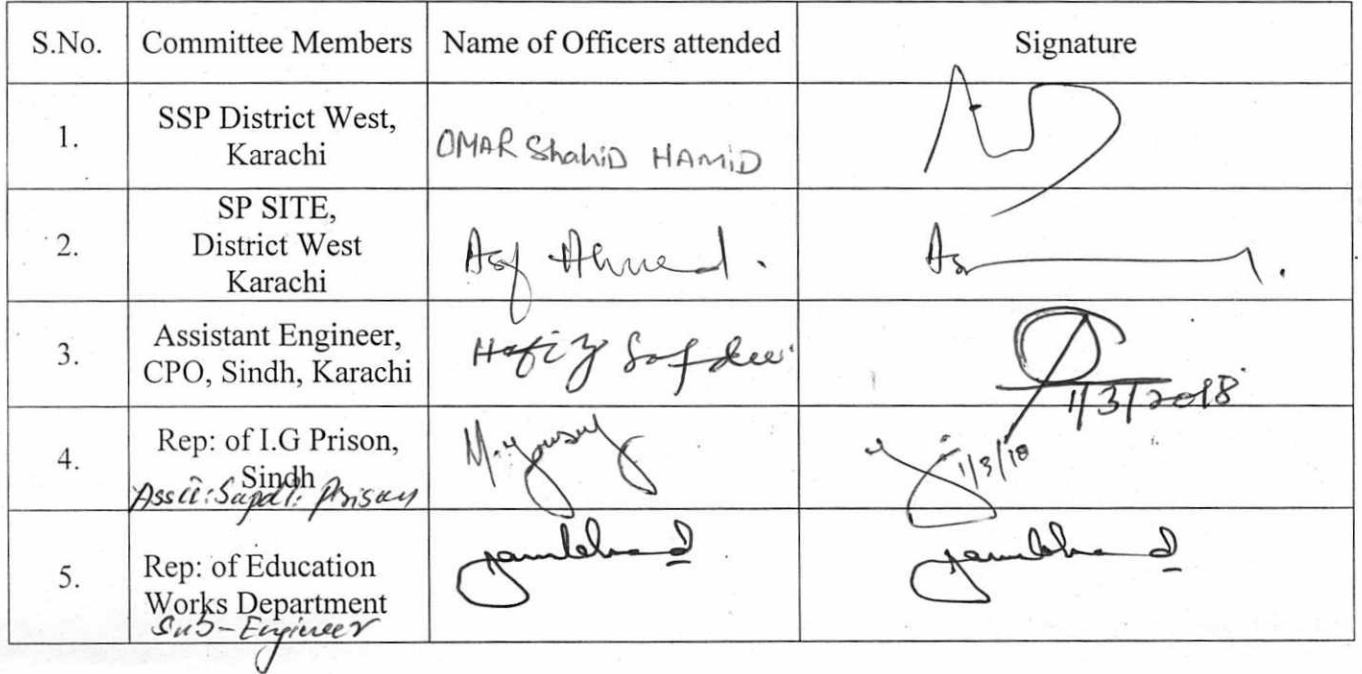 S.No. Committee Members Name of Officers attended Signature
1. SSP District West,
Karachi OMAR ShahiD HAMiD
2. SP SITE,
District West
Karachi Asif Ahmed.
3. Assistant Engineer,
CPO, Sindh, Karachi Hafiz Safdar
1/3/2018
4. Rep: of I.G Prison,
Sindh M. Yousuf 1/3/18
Asstt: Supdt: Prison
5. Rep: of Education
Works Department
Sub-Engineer